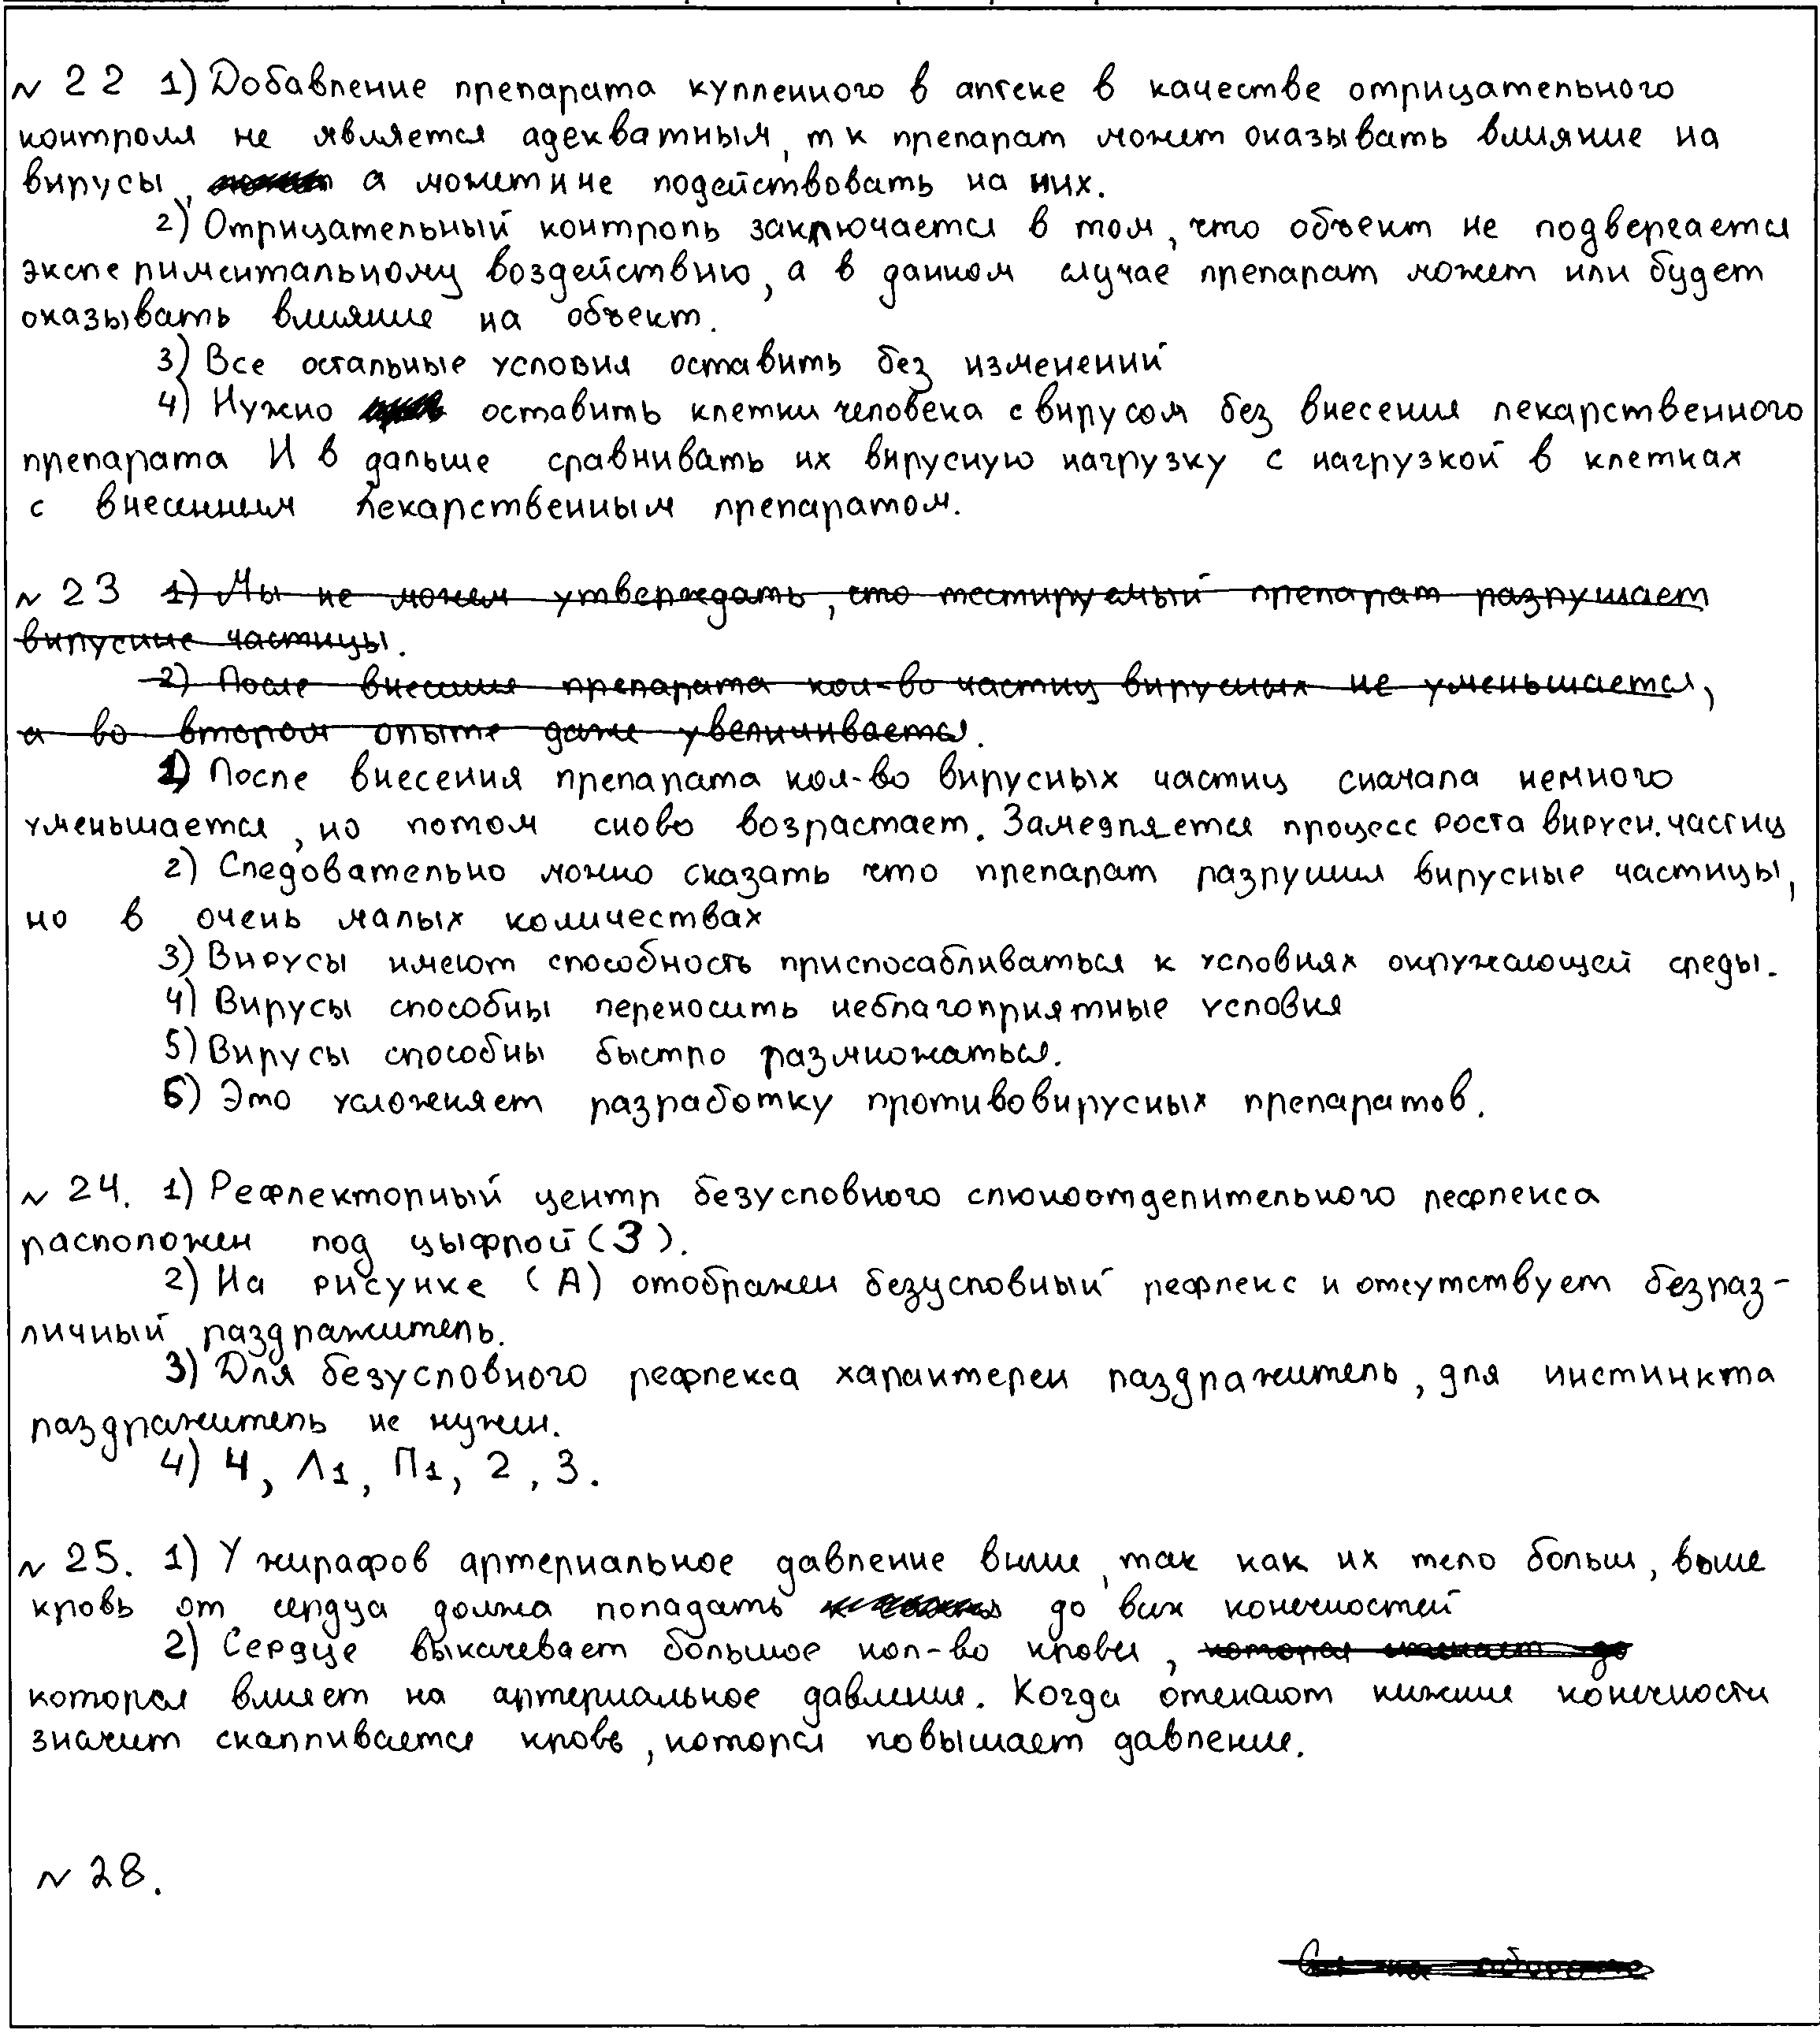 № 22 1) Добавление препарата купленного в аптеке в качестве отрицательного
контроля не является адекватным, т к препарат может оказывать влияние на
вирусы, а может и не подействовать на них.
2) Отрицательный контроль заключается в том, что объект не подвергается
экспериментальному воздействию, а в данном случае препарат может или будет
оказывать влияние на объект.
3) Все остальные условия оставить без изменений
4) Нужно оставить клетки человека с вирусом без внесения лекарственного
препарата И в дальше сравнивать их вирусную нагрузку с нагрузкой в клетках
с внесенным лекарственным препаратом.
№ 23 1) Мы не можем утверждать, что тестируемый препарат разрушает
вирусные частицы.
2) После внесения препарата кол-во частиц вирусных не уменьшается,
а во втором опыте даже увеличивается.
1) После внесения препарата кол-во вирусных частиц сначала немного
уменьшается, но потом снова возрастает. Замедляется процесс роста вирусн. частиц
2) Следовательно можно сказать что препарат разрушил вирусные частицы,
но в очень малых количествах
3) Вирусы имеют способность приспосабливаться к условиях окружающей среды.
4) Вирусы способны переносить неблагоприятные условия
5) Вирусы способны быстро размножаться.
6) Это усложняет разработку противовирусных препаратов.
№ 24. 1) Рефлекторный центр безусловного слюноотделительного рефлекса
расположен под цыфрой (3).
2) На рисунке (А) отображен безусловный рефлекс и отсутствует безраз-
личный раздражитель.
3) Для безусловного рефлекса характерен раздражитель, для инстинкта
раздражитель не нужен.
4) 4, Л1, П1, 2, 3.
№ 25. 1) У жирафов артериальное давление выше, так как их тело больш, выше
кровь от сердца должа попадать до вих конечностей
2) Сердце выкачевает большое кол-во крови,
которся влияет на артериальное давление. Когда отекают нижние конечности
значит скапливается кровь, которся повышает давление.
№ 28.